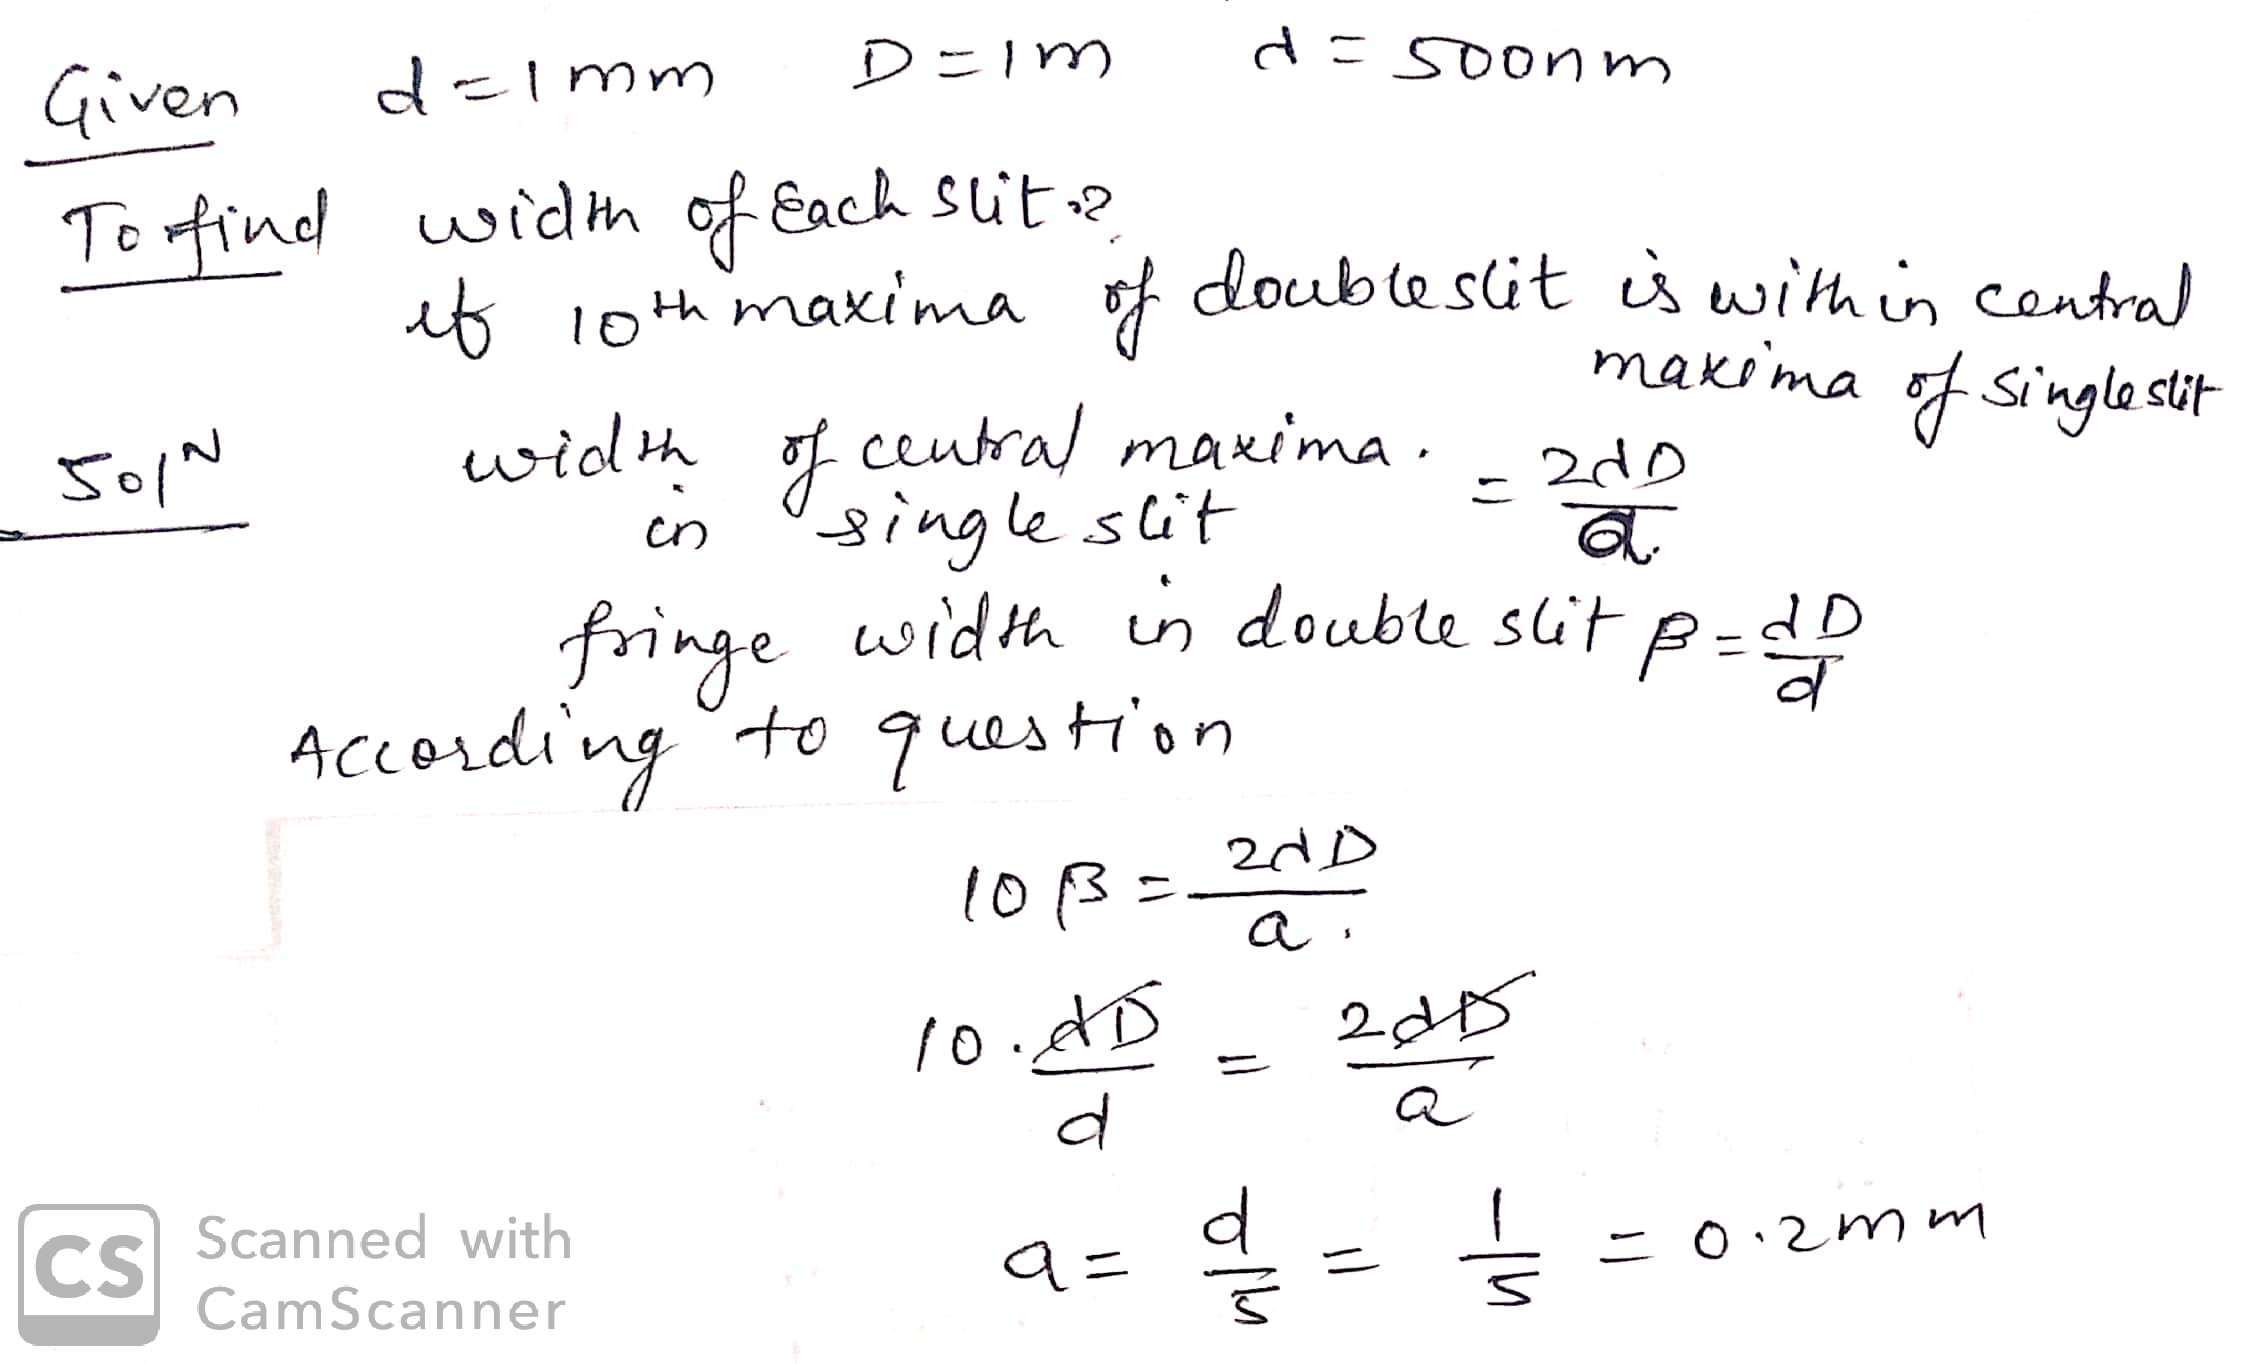 Given d=1mm D=1m λ=500nm
To find width of Each slit.?
if 10th maxima of double slit is within central
maxima of single slit
Solⁿ width of central maxima. = 2λD/a.
in single slit
fringe width in double slit β=λD/d
According to question
10β = 2λD/a.
10.λD/d = 2λD/a
a = d/5 = 1/5 = 0.2mm
CS Scanned with
CamScanner